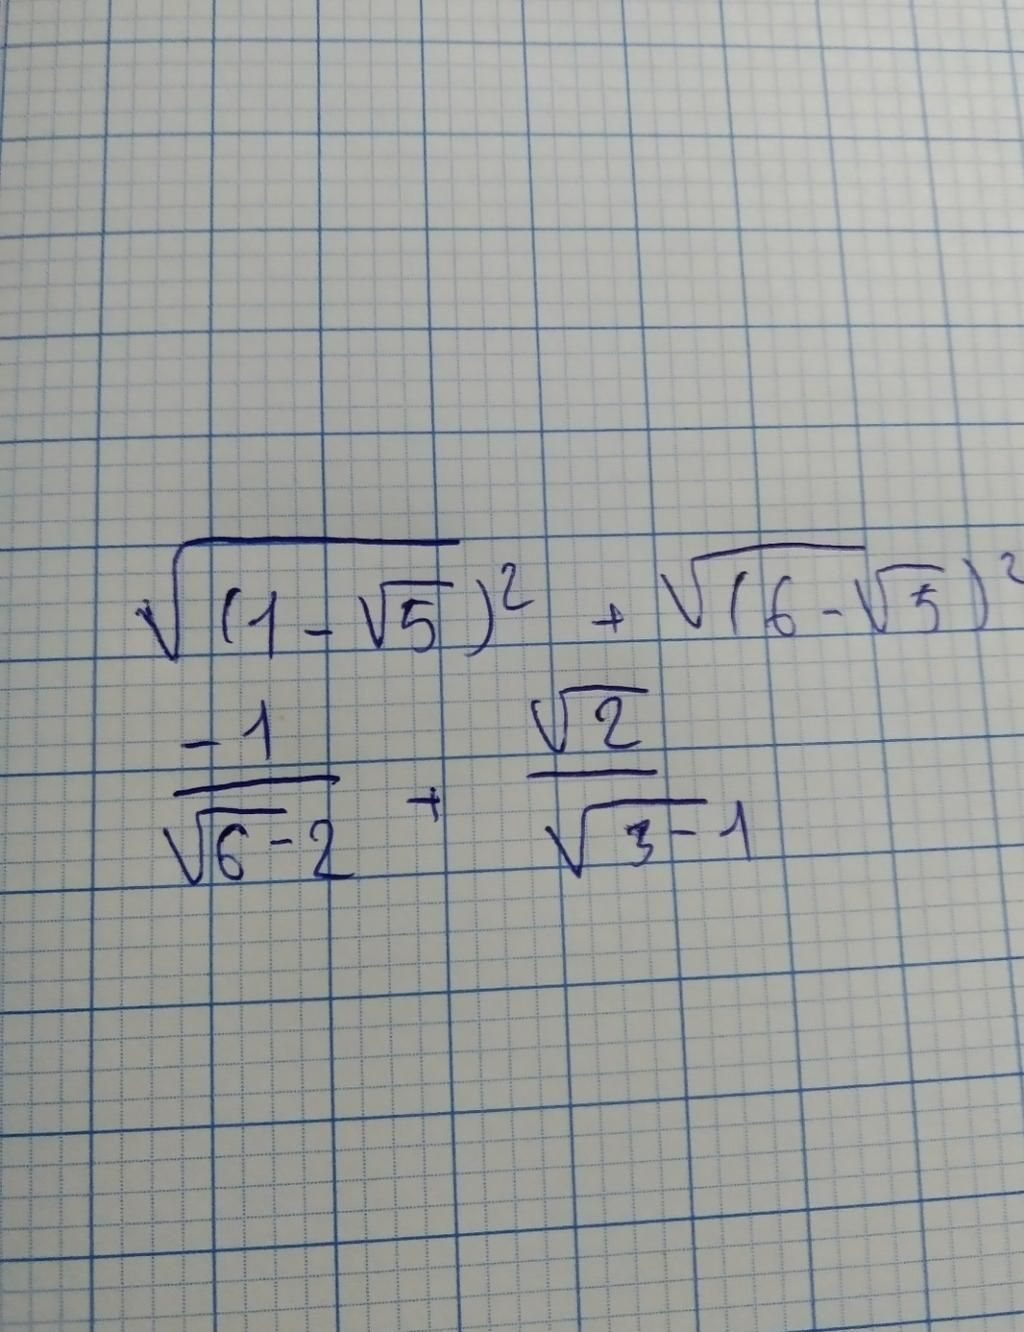 √(1 - √5)² + √(6 - √5)²
-1/(√6 - 2) + √2/(√3 - 1)